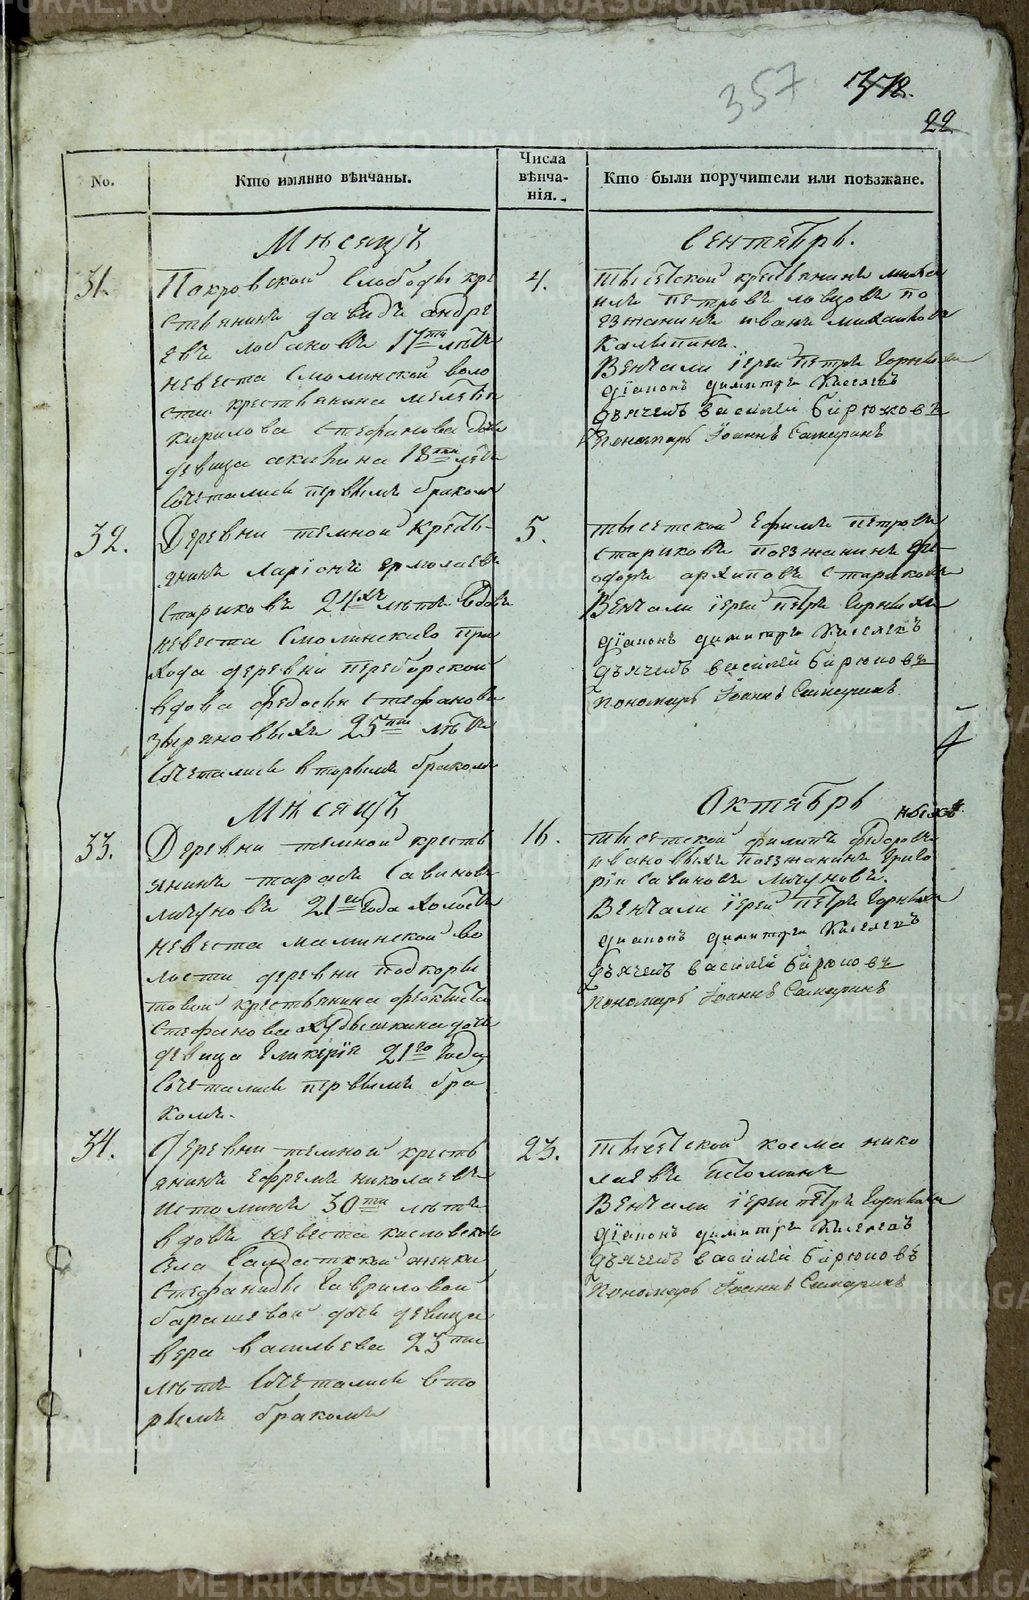 357
378.
22
No.
Кто имянно вѣнчаны.
Числа
вѣнча-
нія.
Кто были поручители или поѣзжане.
Мѣсяцъ
Сентябрь.
31.
Покровской слободы кре
стьянинъ давидъ андре
евъ лобановъ 17ти лѣтъ
невеста Смолинской воло
сти крестьянина
кирилова Стефанова дочь
девица акилина 18ти лѣтъ
сочетались первымъ бракомъ
4.
крестьянинъ миха
илъ петровъ по
езжанинъ иванъ михаиловъ
Калытинъ.
Венчали іереи петръ Горныхъ
діаконъ димитри Киселевъ
дьячекъ василеи бирюковъ
Пономарь Іоаннъ Самаринъ
32.
Деревни темной кресть-
янинъ Ларіонъ ермолаевъ
Стариковъ 24хъ лѣтъ вдовъ
невеста Смолинскаго при
хода деревни переборской
вдова федосья Стефанова
зыряновыхъ 25ти лѣтъ
Сочетались вторымъ бракомъ
5.
Ефимъ петровъ
Стариковъ поезжанинъ фе-
одоръ архиповъ Стариковъ
Венчали іереи петръ Горныхъ
діаконъ димитри Киселевъ
дьячекъ василеи бирюковъ
Пономарь Іоаннъ Самаринъ
Мѣсяцъ
Октябрь
33.
Деревни темной кресть
янинъ тарасъ Савиновъ
личуновъ 21го года холостъ
невеста маминской во
лости деревни подкоры
товой крестьянина феоктиста
Стефанова дочь
девица Гликерія 21го года
Сочетались первымъ бра
комъ.
16.
филипъ федоровъ
ивановыхъ поезжанинъ Григо
ріи Савиновъ личуновъ.
Венчали іереи петръ Горныхъ
диаконъ димитри Киселевъ
дьячекъ василеи бирюковъ
Пономарь Іоаннъ Самаринъ
34.
Деревни темной кресть
янинъ ефремъ николаевъ
истоминъ 30ти лѣтъ
вдовъ невеста кисловскаго
Села женки
Стефаниды Гавриловой
барашевой дочь девица
вера васильева 25ти
лѣтъ Сочетались вто
рымъ бракомъ
23.
косма нико
лаевъ
Венчали іереи петръ Горныхъ
діаконъ димитри Киселевъ
дьячекъ василеи бирюковъ
Пономарь Іоаннъ Самаринъ
METRIKI.GASO-URAL.RU